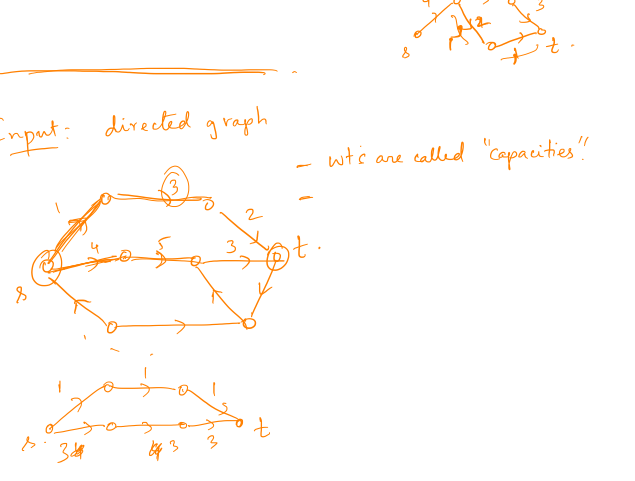 4 3
1 2
s 1 t.
Input: directed graph
- wt's are called "capacities".
-
1 3 2
4 5 3 t.
s
1 1 1
s. 3 4 4 3 3 t